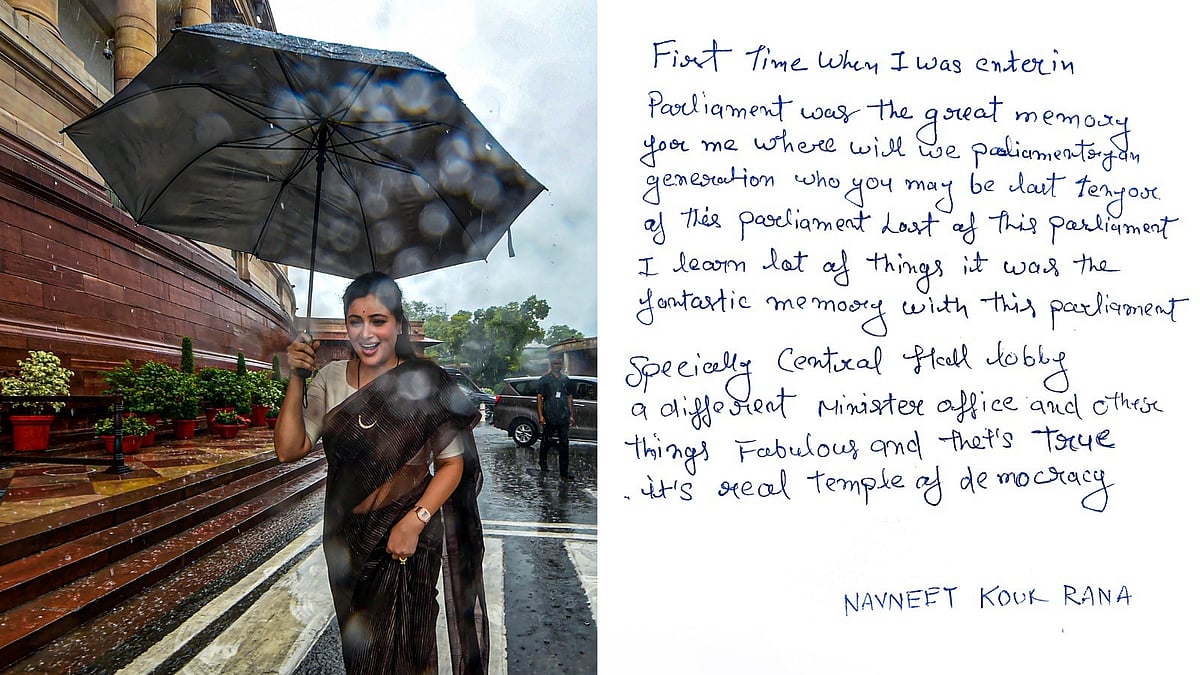 First Time When I was enterin
Parliament was the great memory
for me where will we parliamentaryan
generation who you may be last tenyor
of this parliament Last of this parliament
I learn lot of things it was the
fantastic memory with this parliament
Specially Central Hall lobby
a different Minister office and other
things Fabulous and that's True
. it's real temple of democracy
NAVNEET KOUR RANA